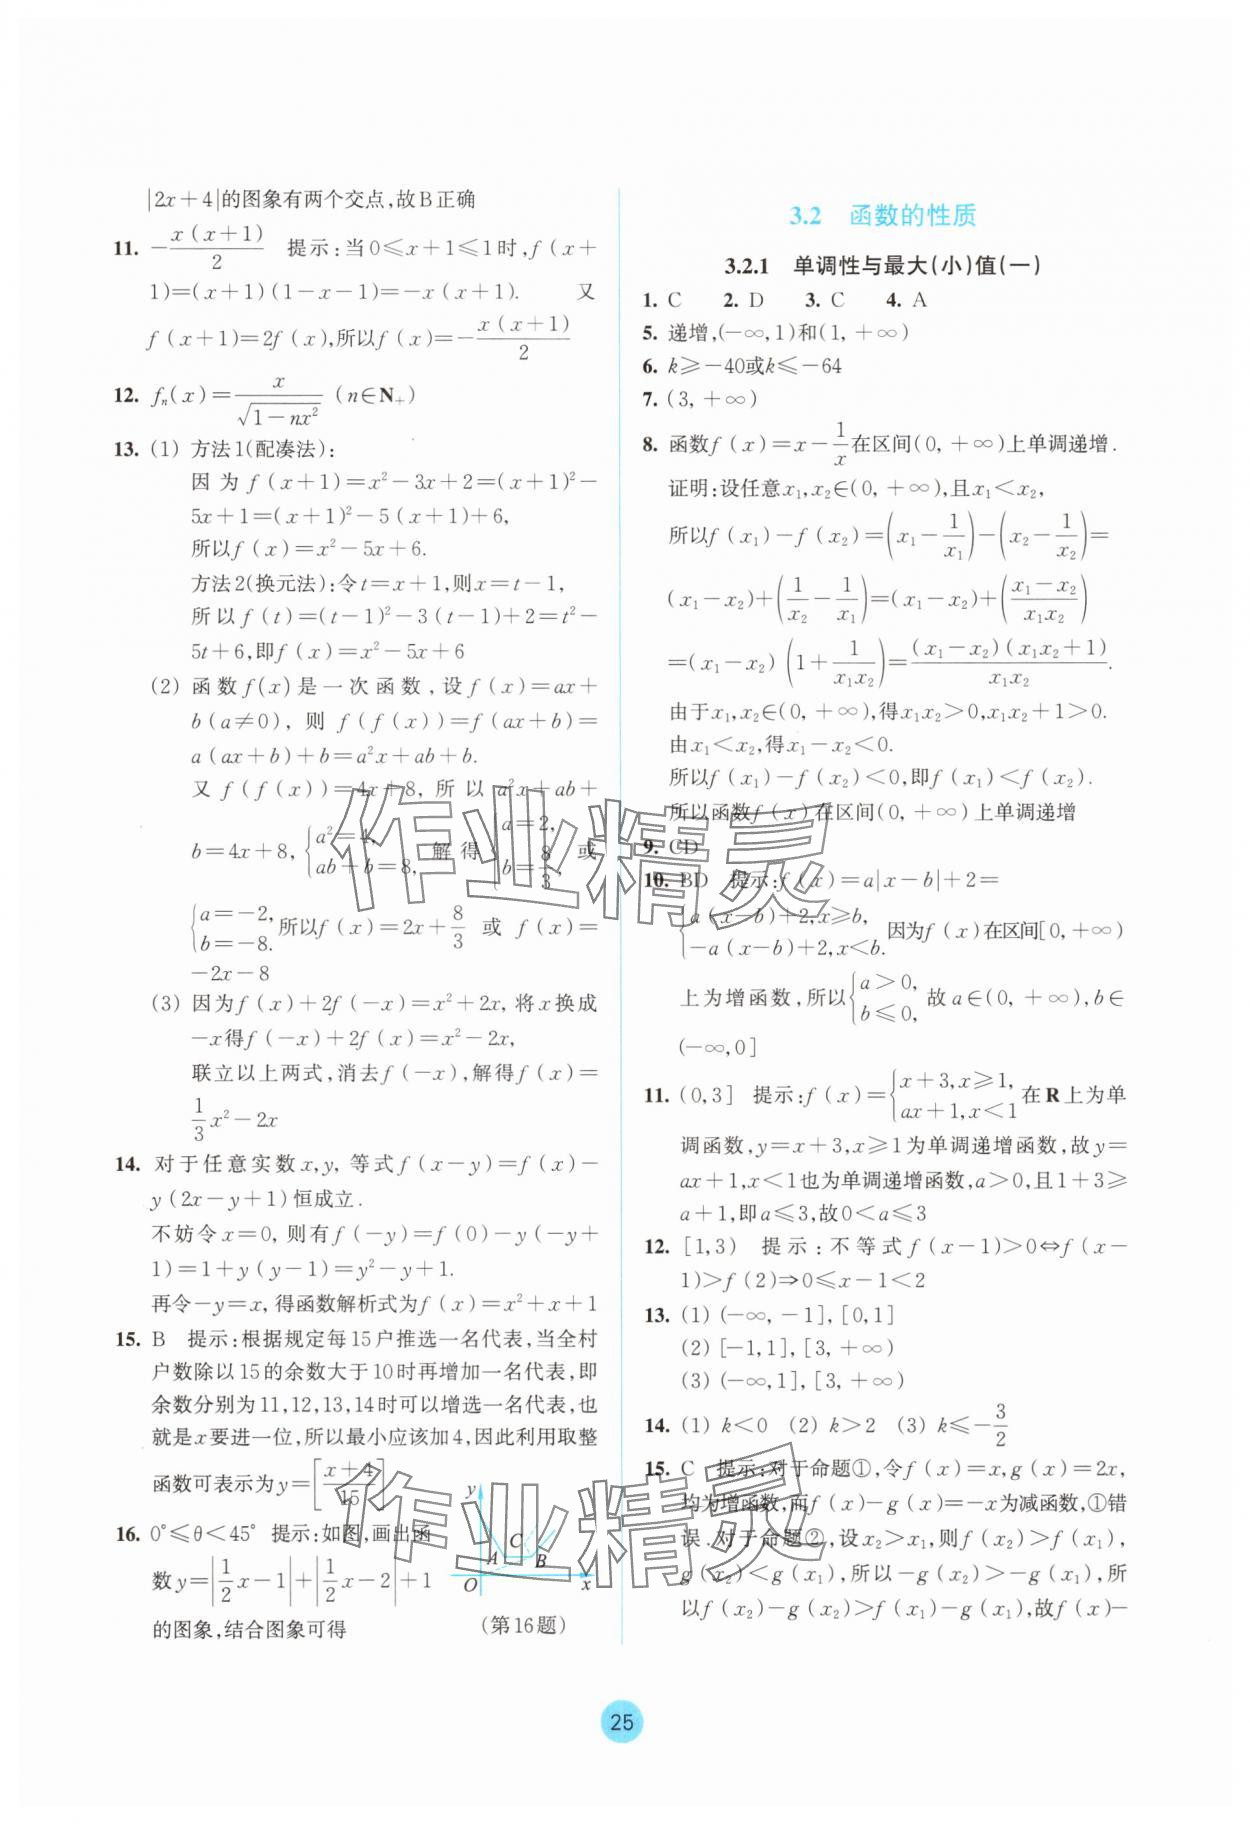 |2x+4|的图象有两个交点,故B正确
11. -\frac{x(x+1)}{2} 提示:当0≤x+1≤1时,f(x+
1)=(x+1)(1-x-1)=-x(x+1). 又
f(x+1)=2f(x),所以f(x)=-\frac{x(x+1)}{2}
12. f_n(x)=\frac{x}{\sqrt{1-nx^2}} (n∈N_+)
13. (1) 方法1(配凑法):
因为f(x+1)=x²-3x+2=(x+1)²-
5x+1=(x+1)²-5(x+1)+6,
所以f(x)=x²-5x+6.
方法2(换元法):令t=x+1,则x=t-1,
所以f(t)=(t-1)²-3(t-1)+2=t²-
5t+6,即f(x)=x²-5x+6
(2) 函数f(x)是一次函数,设f(x)=ax+
b(a≠0),则f(f(x))=f(ax+b)=
a(ax+b)+b=a²x+ab+b.
又f(f(x))=4x+8,所以a²x+ab+
b=4x+8, {a²=4, ab+b=8, 解得 {a=2, b=\frac{8}{3}, 或
{a=-2, b=-8. 所以f(x)=2x+\frac{8}{3} 或 f(x)=
-2x-8
(3) 因为f(x)+2f(-x)=x²+2x,将x换成
-x得f(-x)+2f(x)=x²-2x,
联立以上两式,消去f(-x),解得f(x)=
\frac{1}{3}x²-2x
14. 对于任意实数x,y,等式f(x-y)=f(x)-
y(2x-y+1)恒成立.
不妨令x=0,则有f(-y)=f(0)-y(-y+
1)=1+y(y-1)=y²-y+1.
再令-y=x,得函数解析式为f(x)=x²+x+1
15. B 提示:根据规定每15户推选一名代表,当全村
户数除以15的余数大于10时再增加一名代表,即
余数分别为11,12,13,14时可以增选一名代表,也
就是x要进一位,所以最小应该加4,因此利用取整
函数可表示为y=[\frac{x+4}{15}]
16. 0°≤θ<45° 提示:如图,画出函
数y=|\frac{1}{2}x-1|+|\frac{1}{2}x-2|+1
的图象,结合图象可得
y
C
A
B
O
x
(第16题)
3.2 函数的性质
3.2.1 单调性与最大(小)值(一)
1. C 2. D 3. C 4. A
5. 递增,(-∞,1)和(1,+∞)
6. k≥-40或k≤-64
7. (3,+∞)
8. 函数f(x)=x-\frac{1}{x}在区间(0,+∞)上单调递增.
证明:设任意x₁,x₂∈(0,+∞),且x₁<x₂,
所以f(x₁)-f(x₂)=(x₁-\frac{1}{x₁})-(x₂-\frac{1}{x₂})=
(x₁-x₂)+(\frac{1}{x₂}-\frac{1}{x₁})=(x₁-x₂)+(\frac{x₁-x₂}{x₁x₂})
=(x₁-x₂)(1+\frac{1}{x₁x₂})=\frac{(x₁-x₂)(x₁x₂+1)}{x₁x₂}.
由于x₁,x₂∈(0,+∞),得x₁x₂>0,x₁x₂+1>0.
由x₁<x₂,得x₁-x₂<0.
所以f(x₁)-f(x₂)<0,即f(x₁)<f(x₂).
所以函数f(x)在区间(0,+∞)上单调递增
9. CD
10. BD 提示:f(x)=a|x-b|+2=
{a(x-b)+2,x≥b, -a(x-b)+2,x<b. 因为f(x)在区间[0,+∞)
上为增函数,所以{a>0, b≤0, 故a∈(0,+∞),b∈
(-∞,0]
11. (0,3] 提示:f(x)={x+3,x≥1, ax+1,x<1 在R上为单
调函数,y=x+3,x≥1为单调递增函数,故y=
ax+1,x<1也为单调递增函数,a>0,且1+3≥
a+1,即a≤3,故0<a≤3
12. [1,3) 提示:不等式f(x-1)>0⇔f(x-
1)>f(2)⇒0≤x-1<2
13. (1) (-∞,-1],[0,1]
(2) [-1,1],[3,+∞)
(3) (-∞,1],[3,+∞)
14. (1) k<0 (2) k>2 (3) k≤-\frac{3}{2}
15. C 提示:对于命题①,令f(x)=x,g(x)=2x,
均为增函数,而f(x)-g(x)=-x为减函数,①错
误.对于命题②,设x₂>x₁,则f(x₂)>f(x₁),
g(x₂)<g(x₁),所以-g(x₂)>-g(x₁),所
以f(x₂)-g(x₂)>f(x₁)-g(x₁),故f(x)-
作业精灵
作业精灵
25